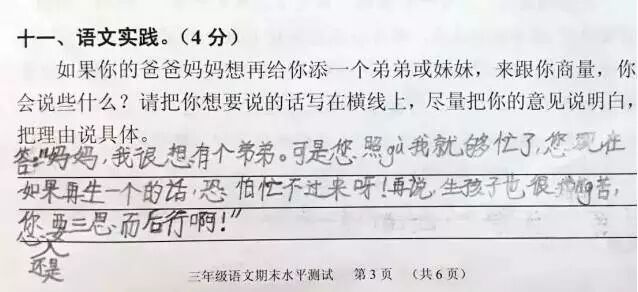 十一、语文实践。(4分)
如果你的爸爸妈妈想再给你添一个弟弟或妹妹，来跟你商量，你
会说些什么？请把你想要说的话写在横线上，尽量把你的意见说明白，
把理由说具体。
答:"妈妈,我很想有个弟弟。可是您照gù我就够忙了,您现在
如果再生一个的话,恐怕忙不过来呀!再说,生孩子也很苦,
您要三思而后行啊!"
还是
三年级语文期末水平测试 第3页 （共6页）